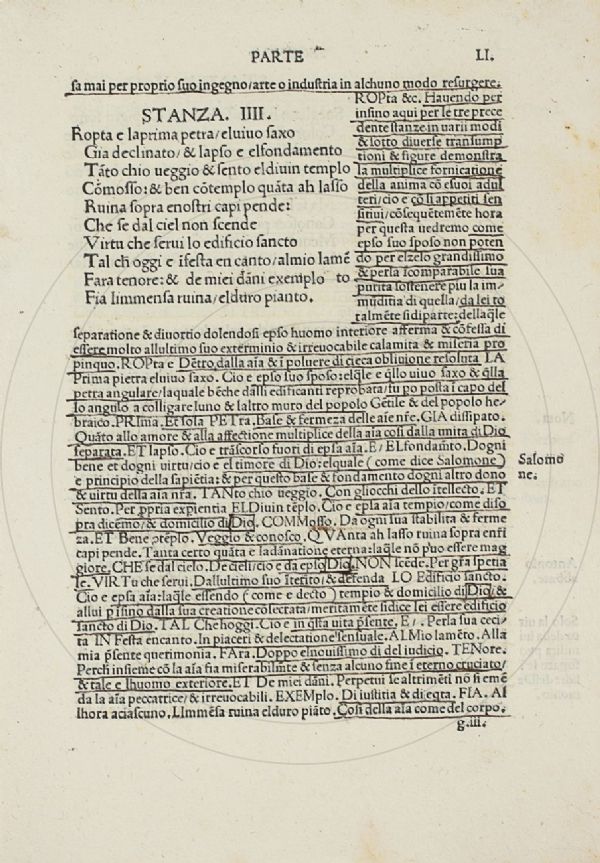 PARTE LI.
sa mai per proprio suo ingegno/arte o industria in alchuno modo resurgere.
STANZA. IIII.
Ropta e laprima petra/eluiuo saxo
Gia declinato/& lapso e elsondamento
Tãto chio ueggio & sento eldiuin templo
Cõmosso:& ben cõtemplo quãta ah lasso
Ruina sopra enostri capi pende:
Che se dal ciel non scende
Virtu che serui lo edificio sancto
Tal ch oggi e ifesta en canto/almio lamẽ
Fara tenore:& de miei dãni exemplo to
Fia limmensa ruina/elduro pianto.
ROPta &c. Hauendo per
insino aqui per le tre prece
dente stanze in uarii modi
& sotto diuerse transump
tioni & figure demonstra
la multiplice fornicatione
della anima cõ esuoi adul
teri/cio e cõ li appetiti sen
sitiui/cõsequẽtemẽte hora
per questa uedremo come
epso suo sposo non poten
do per elzelo grandissimo
& perla icomparabile sua
purita sostenere piu la im-
mũditia di quella/da lei to
talmẽte si diparte:dellaq̃le
separatione & diuortio dolendosi epso huomo interiore afferma & cõfessa di
essere molto allultimo suo exterminio & irreuocabile calamita & miseria pro
pinquo. ROPta e Dẽtro dalla aĩa & ĩ poluere di cieca obliuione resoluta LA
Prima pietra eluiuo saxo. Cio e epso suo sposo:elq̃le e q̃llo uiuo saxo & q̃lla
petra angulare/laquale bẽche dalli edificanti reprobata/fu po posta ĩ capo del
lo angulo a colligare luno & laltro muro del popolo Gẽtile & del popolo he-
braico. PRIma. Et sola PETra. Base & fermeza delle aĩe nr̃e. GIA dissipato.
Quãto allo amore & alla affectione multiplice della aĩa cosi dalla unita di Dio
separata. ET lapso. Cio e trascorso fuori di epsa aĩa. E/ ELfondamẽto. Dogni
bene et dogni uirtu/cio e el timore di Dio:elquale (come dice Salomone)
e principio della sapiẽtia:& per questo base & fondamento dogni altro dono
& uirtu della aĩa nr̃a. TANto chio ueggio. Con gliocchi dello ĩtellecto. ET
Sento. Per ppria expientia ELDiuin tẽplo. Cio e epla aĩa tempio/come diso
pra dicẽmo/& domicilio di Dio. COMMosso. Da ogni sua stabilita & ferme
za. ET Bene ptẽplo. Veggio & conosco. QVAnta ah lasso ruina sopra enri
capi pende. Tanta certo quãta e la dãnatione eterna:laq̃le nõ p̃uo essere mag
giore. CHE se dal cielo. De cieli/cio e da epso Dio. NON scẽde. Per gr̃a spetia
le. VIRTu che serui. Dallultimo suo ĩterito/& defenda LO Edificio sancto.
Cio e epsa aĩa:laq̃le essendo (come e decto) tempio & domicilio di Dio/&
allui p̃sino dalla sua creatione cõsecrata/meritamẽte sidice lei essere edificio
sancto di Dio. TAL Che hoggi. Cio e in q̃sta uita p̃sente. E/. Perla sua ceci
ta IN Festa encanto. In piaceri & delectatione sensuale. ALMio lamẽto. Alla
mia p̃sente querimonia. FAra. Doppo elnouissimo di del iudicio. TENore.
Perch insieme cõ la aĩa fia miserabilmẽte & senza alcuno fine ĩ eterno cruciato/
& tale e lhuomo exteriore. ET De miei dãni. Perpetui se altrimẽti nõ si emẽ
da la aĩa peccatrice/& irreuocabili. EXEMplo. Di iustitia & di eq̃ta. FIA. Al
lhora aciascuno. LImmẽsa ruina elduro piãto. Cosi della aĩa come del corpo.
Salomo
ne.
g.iii.